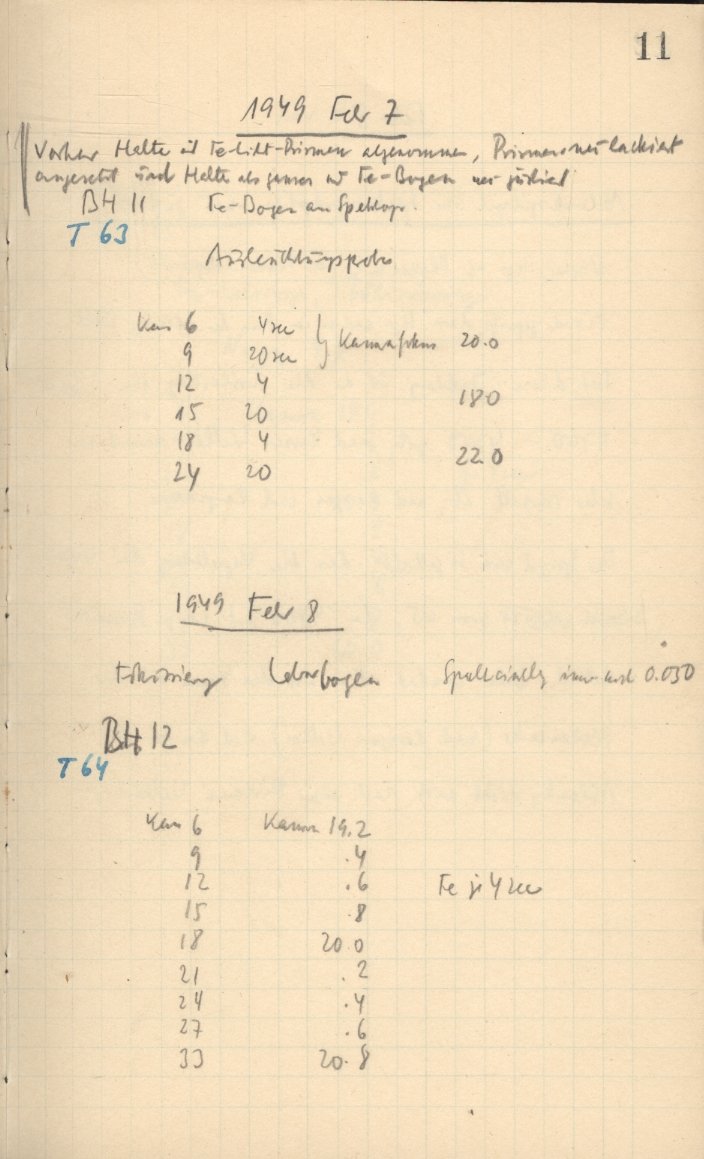 11
1949 Febr 7
Vorher Halter mit Fe-Licht-Prismen abgenommen, Prismen neu lackiert
angesetzt und Halter als ganzes mit Fe-Bogen neu justiert
BH 11 Fe-Bogen am Spektrogr.
T 63
Ausleuchtungsprobe
Kass 6 4 sec
9 20 sec } Kammerfokus 20.0
12 4
15 20 18.0
18 4
24 20 22.0
1949 Febr 8
Fokussierung Cu-Bogen immer noch 0.030
BH 12
T 64
Kass 6 Kamm 19.2
9 .4
12 .6 Fe je 4 sec
15 .8
18 20.0
21 .2
24 .4
27 .6
33 20.8